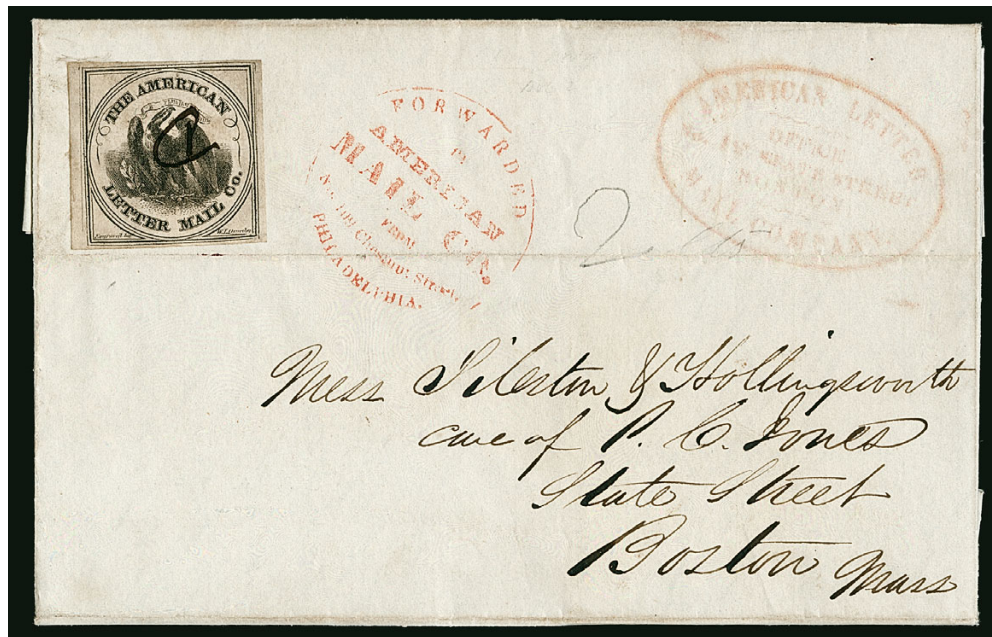 THE AMERICAN
LETTER MAIL Co.
FORWARDED
AMERICAN
MAIL Co.
FROM
No. 109 Chesnut Street,
PHILADELPHIA.
AMERICAN LETTER
MAIL COMPANY
OFFICE
STREET
BOSTON
2
Mess Tileston & Hollingsworth
care of P. C. Jones
State Street
Boston Mass